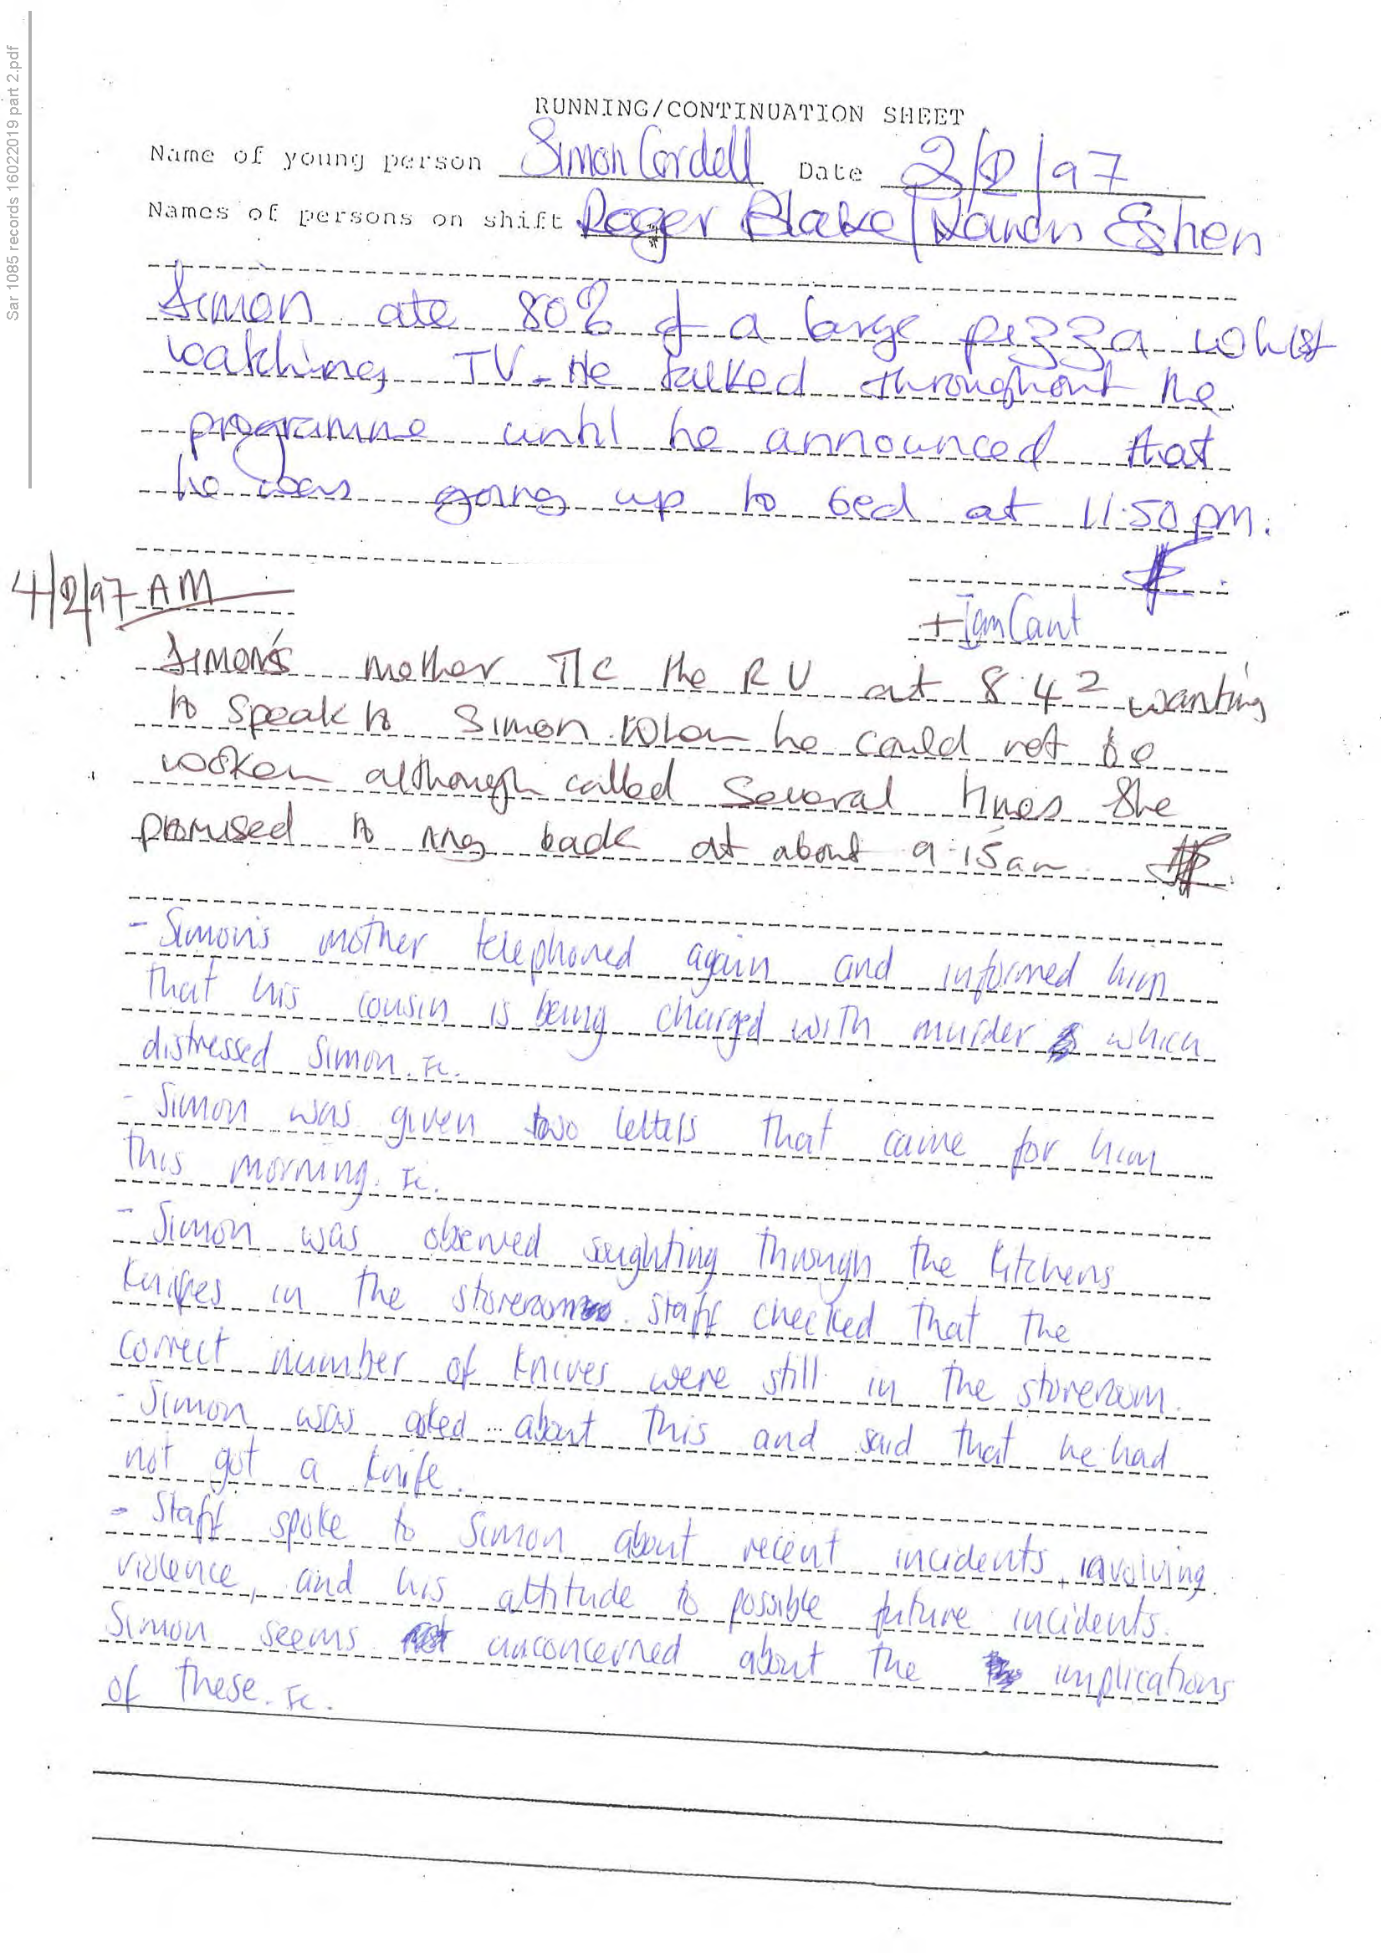 Sar 1085 records 16022019 part 2.pdf
RUNNING/CONTINUATION SHEET
Name of young person Simon Cordell Date 2/2/97
Names of persons on shift Roger Blake/
Simon ate 80% of a large pizza whilst
watching TV. He talked throughout the
programme until he announced that
he was going up to bed at 11.50pm.
4/2/97 AM
+
Simon's mother T/C the RU at 8.42 wanting
to speak to Simon. When he could not be
woken although called several times she
promised to ring back at about 9.15am
- Simon's mother telephoned again and informed him
that his cousin is being charged with murder which
distressed Simon. Ic.
- Simon was given two letters that came for him
this morning. Ic.
- Simon was observed saughting through the kitchens
knifes in the storeroom. Staff checked that the
correct number of knives were still in the storeroom.
- Simon was asked about this and said that he had
not got a knife.
- Staff spoke to Simon about recent incidents involving
violence, and his attitude to possible future incidents.
Simon seems unconcerned about the implications
of these. Ic.